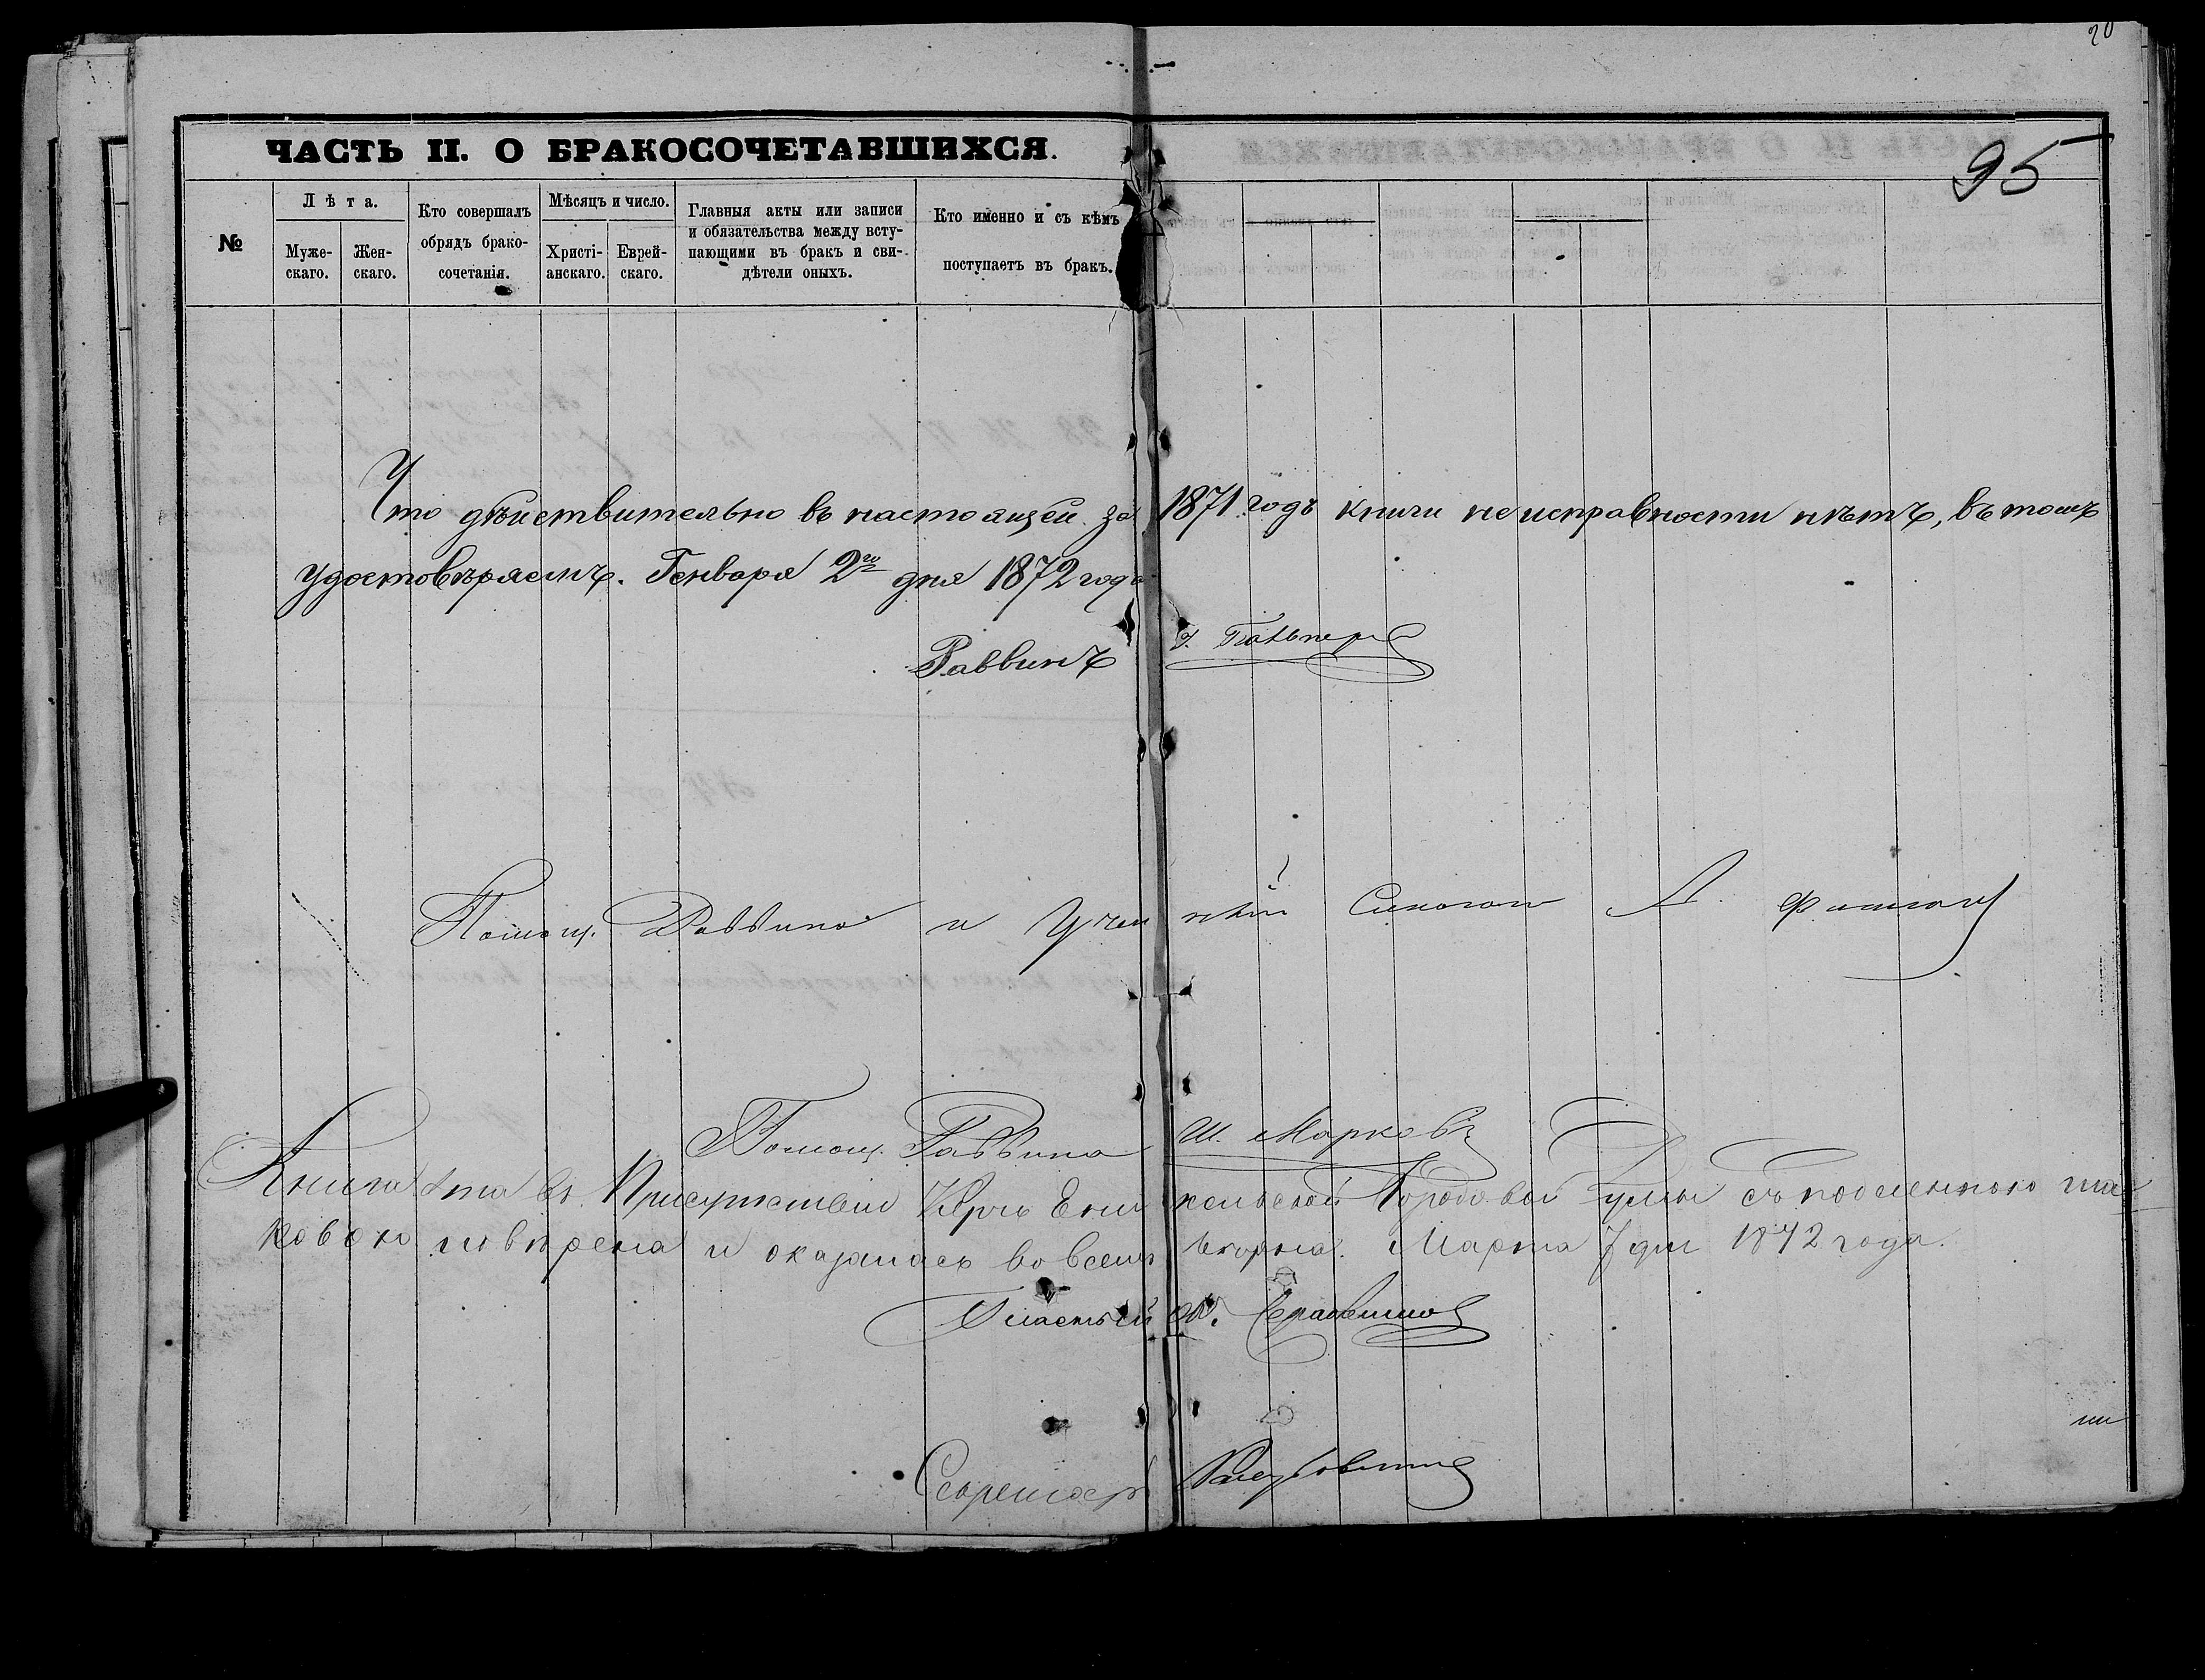 20
95
ЧАСТЬ II. О БРАКОСОЧЕТАВШИХСЯ.
№
Лѣта.
Муже-
скаго.
Жен-
скаго.
Кто совершалъ
обрядъ брако-
сочетанія.
Мѣсяцъ и число.
Христі-
анскаго.
Еврей-
скаго.
Главныя акты или записи
и обязательства между всту-
пающими въ бракъ и сви-
дѣтели оныхъ.
Кто именно и съ кѣмъ
поступаетъ въ бракъ.
Что дѣйствительно въ настоящей за 1871 годъ книги неисправности нѣтъ, въ томъ
удостовѣряемъ. Генваря 2го дня 1872 года
Раввинъ
Помощ. Раввина и
Помощ. Раввина Ш. Марковъ
Книга эта въ Присутствіи Керчь Еникольской Городовой Думы съ подленною та-
ковою повѣрена и оказалась во всемъ вѣрна. Марта 7 дня 1872 года.
Гласный
Секретарь